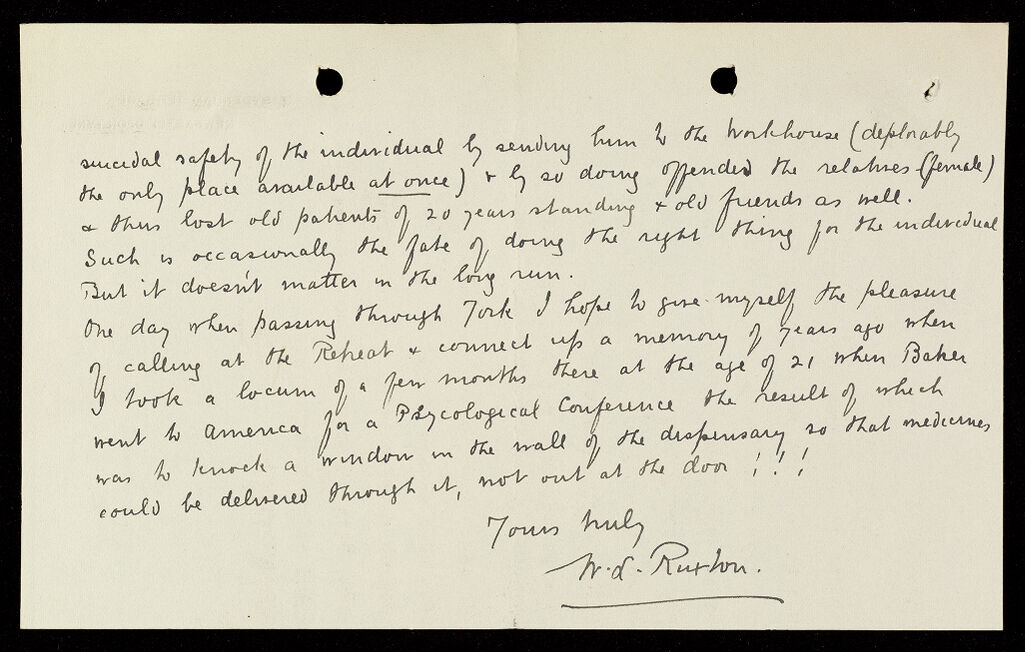 suicidal safety of the individual by sending him to the Workhouse (deplorably
the only place available at once) & by so doing offended the relatives (female)
& thus lost old patients of 20 years standing & old friends as well.
Such is occasionally the fate of doing the right thing for the individual
But it doesn't matter in the long run.
One day when passing through York I hope to give myself the pleasure
of calling at the Retreat & connect up a memory of years ago when
I took a locum of a few months there at the age of 21 when Baker
went to America for a Psycological Conference the result of which
was to knock a window in the wall of the dispensary so that medicines
could be delivered through it, not out at the door ! ! !
Yours truly
W. L. Ruxton.